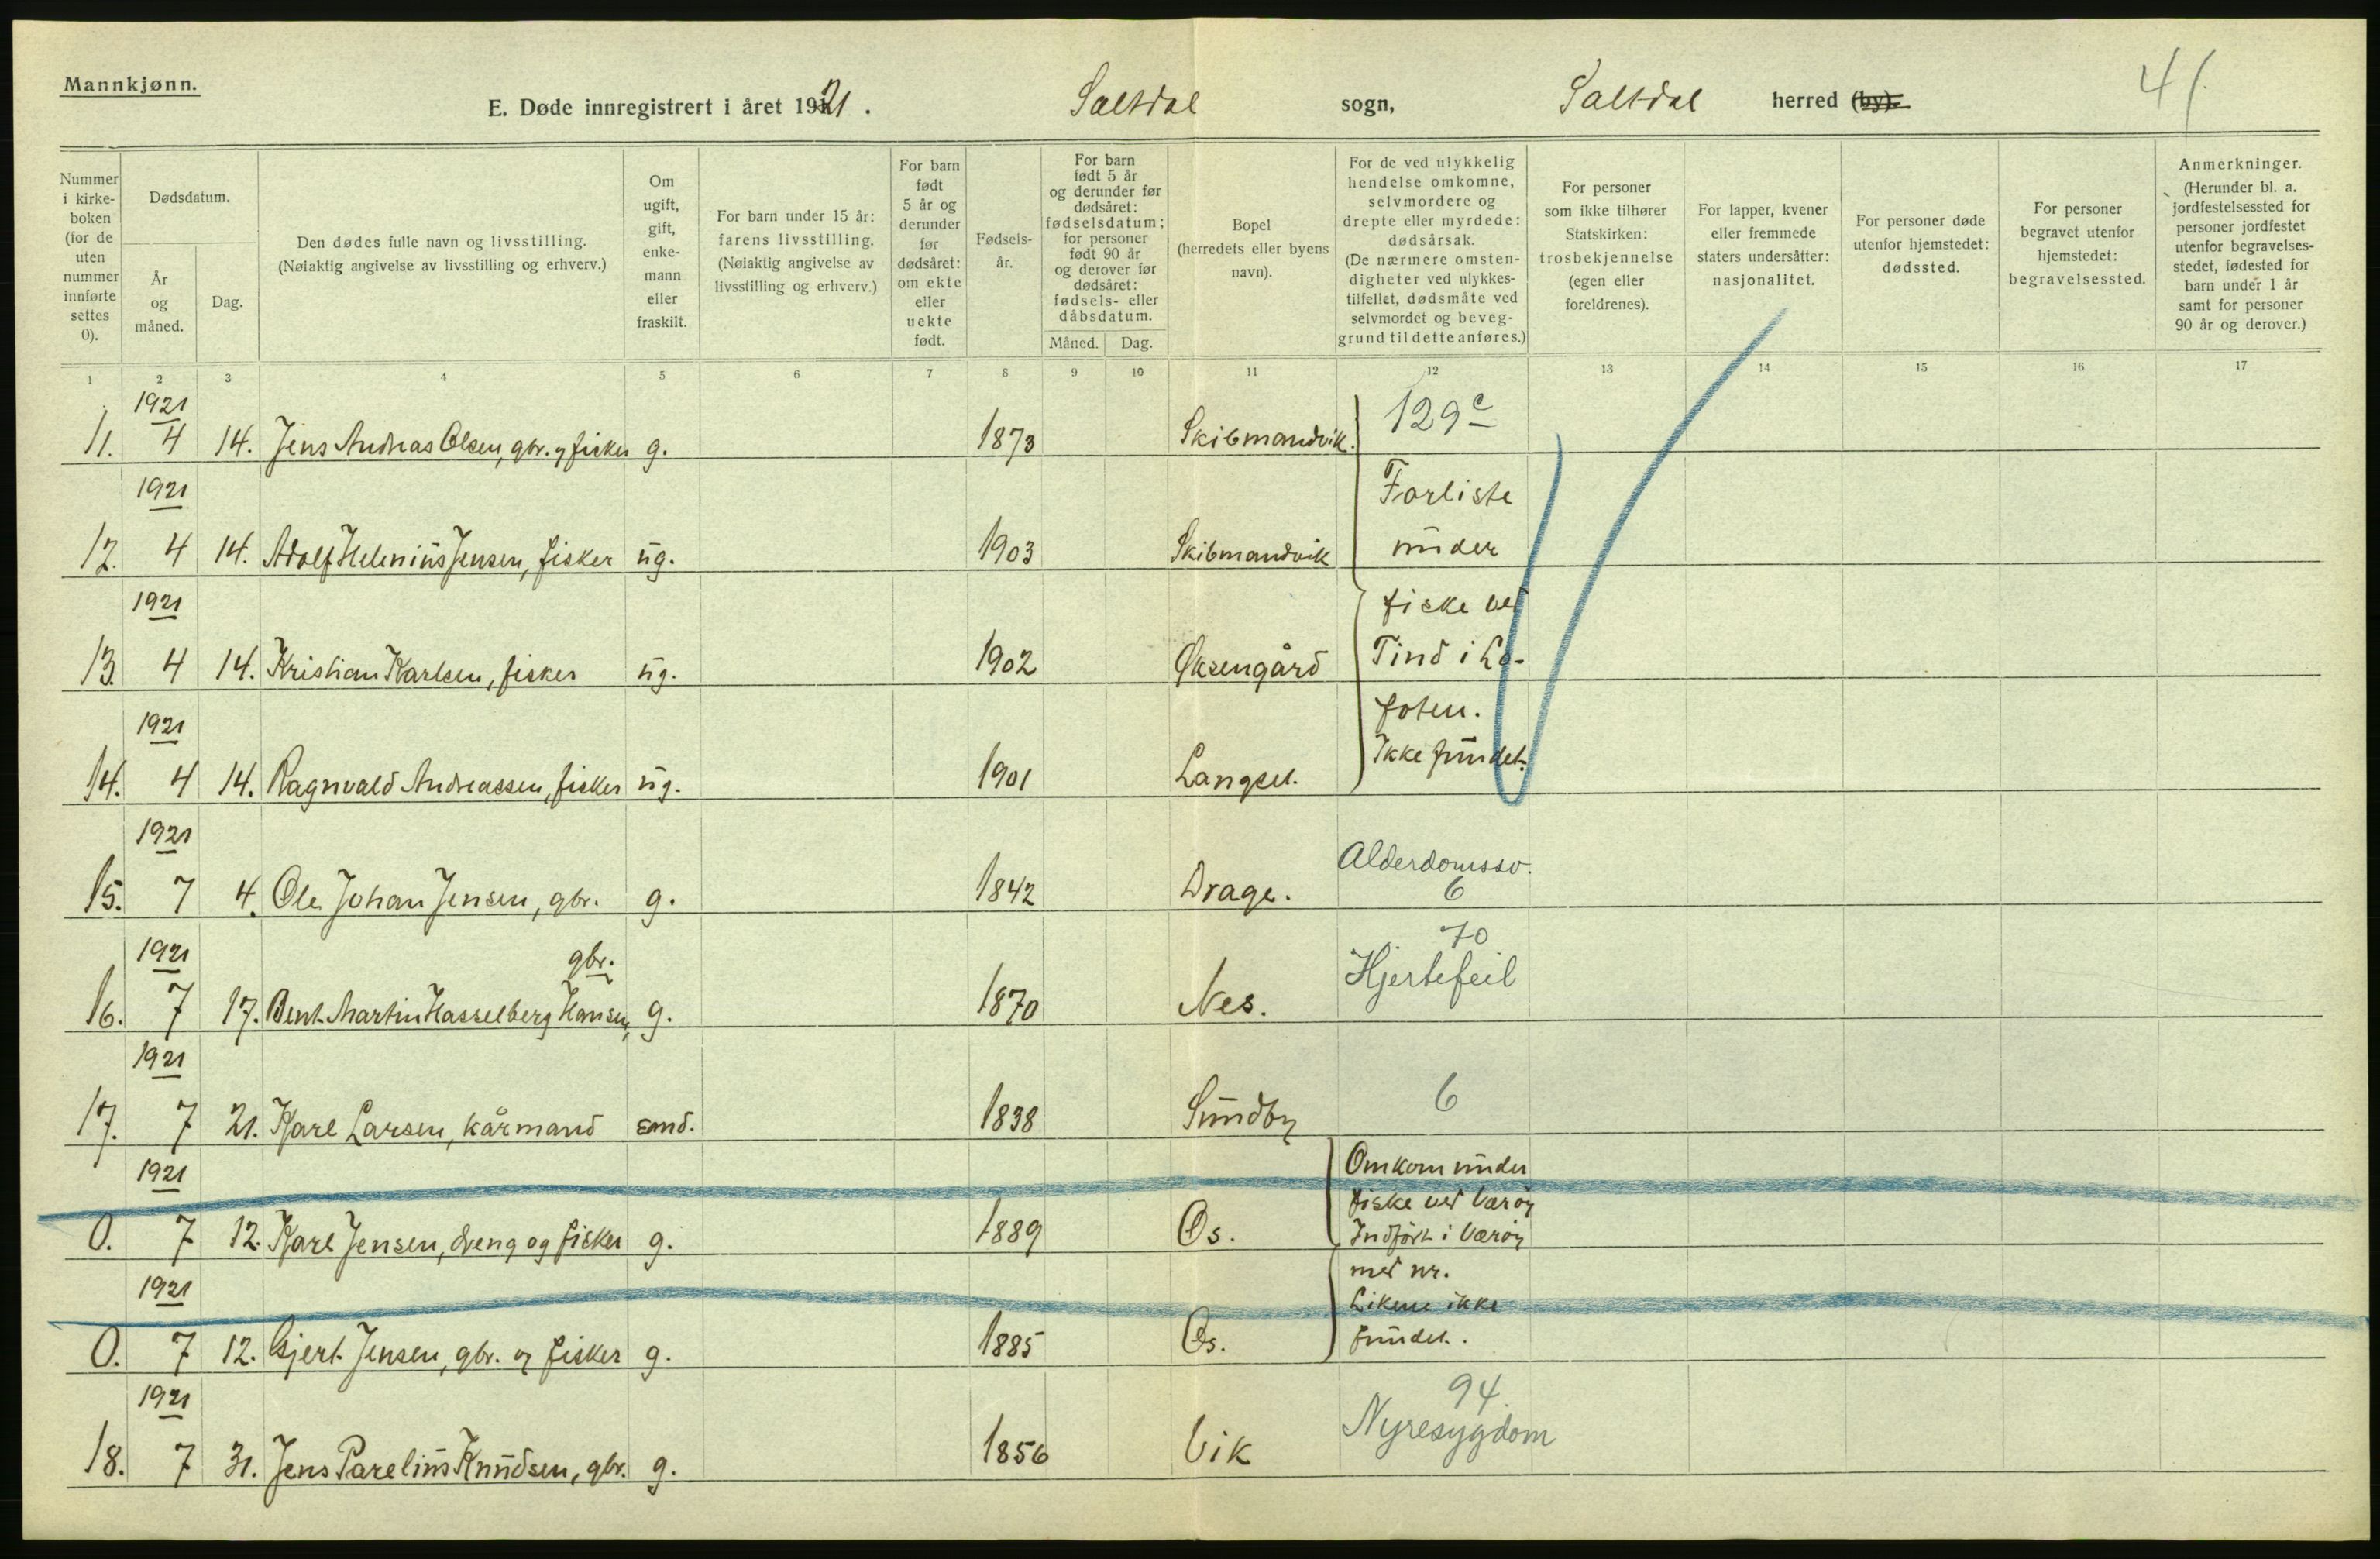 Mannkjønn.
E. Døde innregistrert i året 1921.
Saltdal sogn,
Saltdal herred (by).
41
Nummer i kirke-boken (for de uten nummer innførte settes 0).
Dødsdatum.
År og måned.
Dag.
Den dødes fulle navn og livsstilling.
(Nøiaktig angivelse av livsstilling og erhverv.)
Om ugift, gift, enke-mann eller fraskilt.
For barn under 15 år: farens livsstilling.
(Nøiaktig angivelse av livsstilling og erhverv.)
For barn født 5 år og derunder før dødsåret: om ekte eller uekte født.
Fødsels-år.
For barn født 5 år og derunder før dødsåret: fødselsdatum; for personer født 90 år og derover før dødsåret: fødsels- eller dåbsdatum.
Måned. Dag.
Bopel (herredets eller byens navn).
For de ved ulykkelig hendelse omkomne, selvmordere og drepte eller myrdede: dødsårsak.
(De nærmere omsten-digheter ved ulykkes-tilfellet, dødsmåte ved selvmordet og beveg-grund til dette anføres.)
For personer som ikke tilhører Statskirken: trosbekjennelse (egen eller foreldrenes).
For lapper, kvener eller fremmede staters undersåtter: nasjonalitet.
For personer døde utenfor hjemstedet: dødssted.
For personer begravet utenfor hjemstedet: begravelsessted.
Anmerkninger.
(Herunder bl. a. jordfestelsessted for personer jordfestet utenfor begravelses-stedet, fødested for barn under 1 år samt for personer 90 år og derover.)
1 2 3 4 5 6 7 8 9 10 11 12 13 14 15 16 17
1921
11. 4 14. Jens Andreas Olsen, gbr. og fisker g. 1873 Skibmandvik. 129c
1921 Forliste
12. 4 14. Adolf Helenius Jensen, fisker ug. 1903 Skibmandvik under
1921 fiske ved
13. 4 14. Kristian Karlsen, fisker ug. 1902 Øksengård Tind i Lo-
1921 foten.
14. 4 14. Ragnvald Andreassen, fisker ug. 1901 Langset. Ikke fundet.
1921 Alderdomssv.
15. 7 4. Ole Johan Jensen, gbr. g. 1842 Drage. 6
1921 gbr. 70
16. 7 17. Bent Martin Hasselberg Hansen, g. 1870 Nes. Hjertefeil
1921
17. 7 21. Karl Larsen, kårmand emd. 1838 Sundby 6
1921 Omkom under
fiske ved Værøy
0. 7 12. Karl Jensen, dreng og fisker g. 1889 Os. Indført i Værøy
med nr.
1921 Likene ikke
0. 7 12. Gjert Jensen, gbr. og fisker g. 1885 Os. fundet.
1921 94.
18. 7 31. Jens Parelius Knudsen, gbr. g. 1856 Vik Nyresygdom